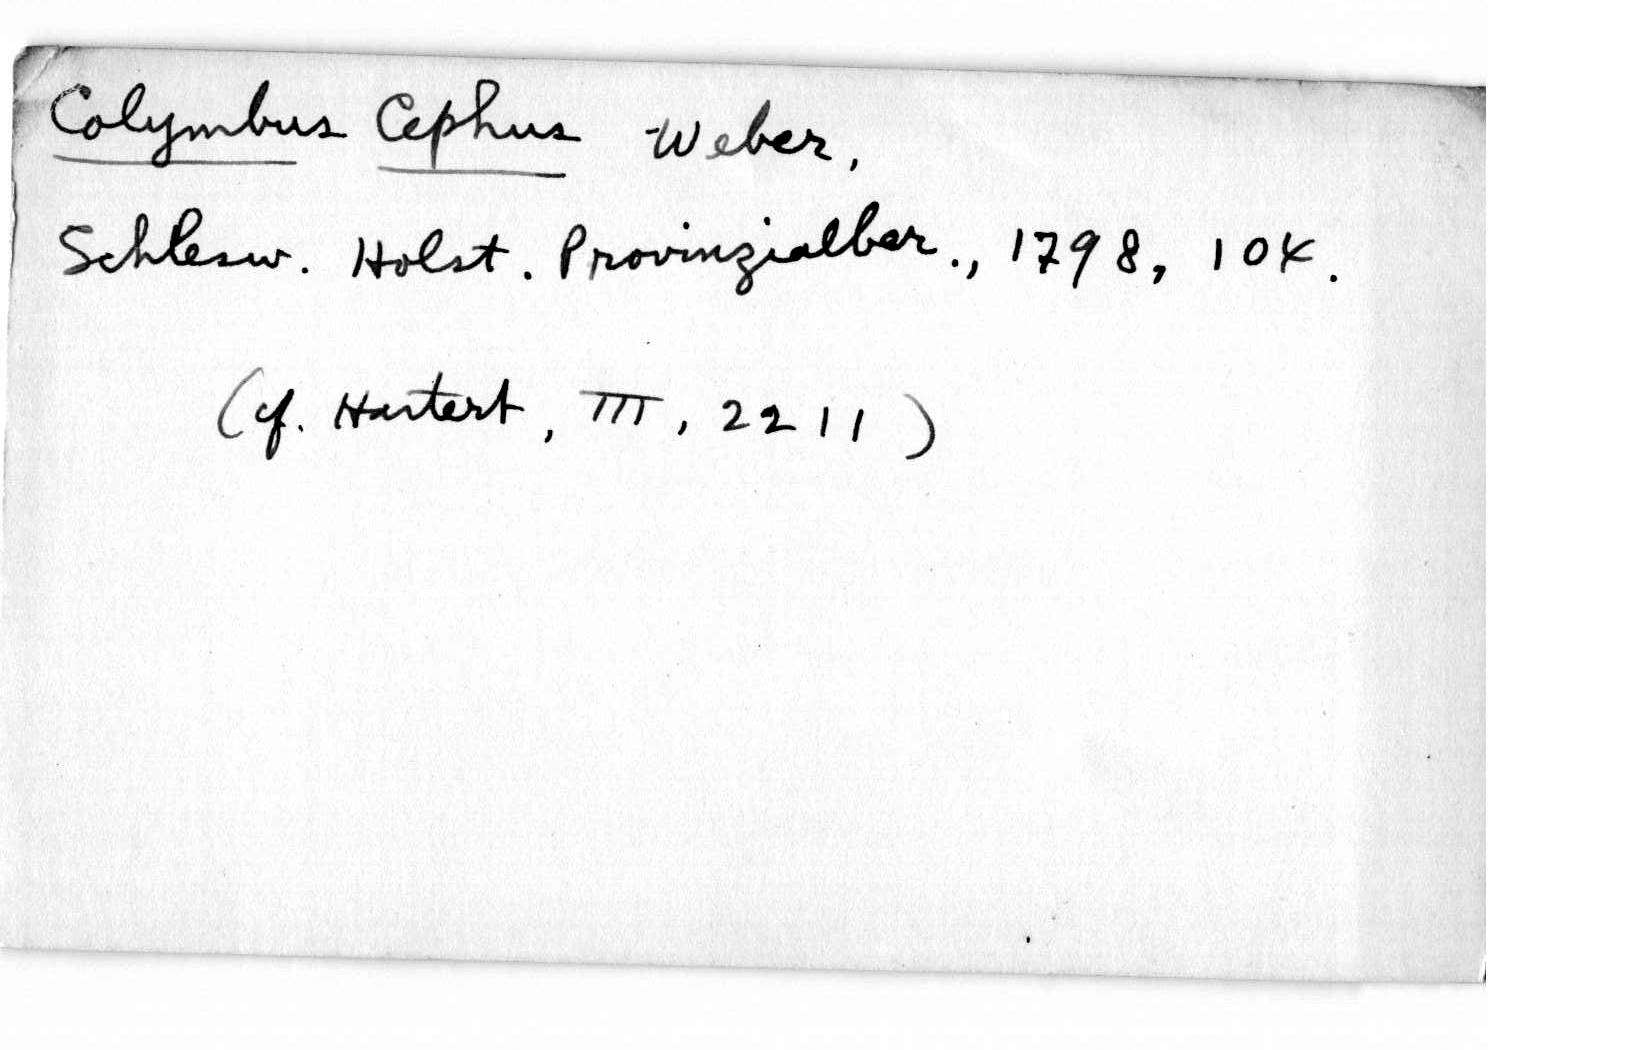 Colymbus Cephus Weber,
Schlesw. Holst. Provinzialber., 1798, 104.
(cf. Hartert, III, 2211)